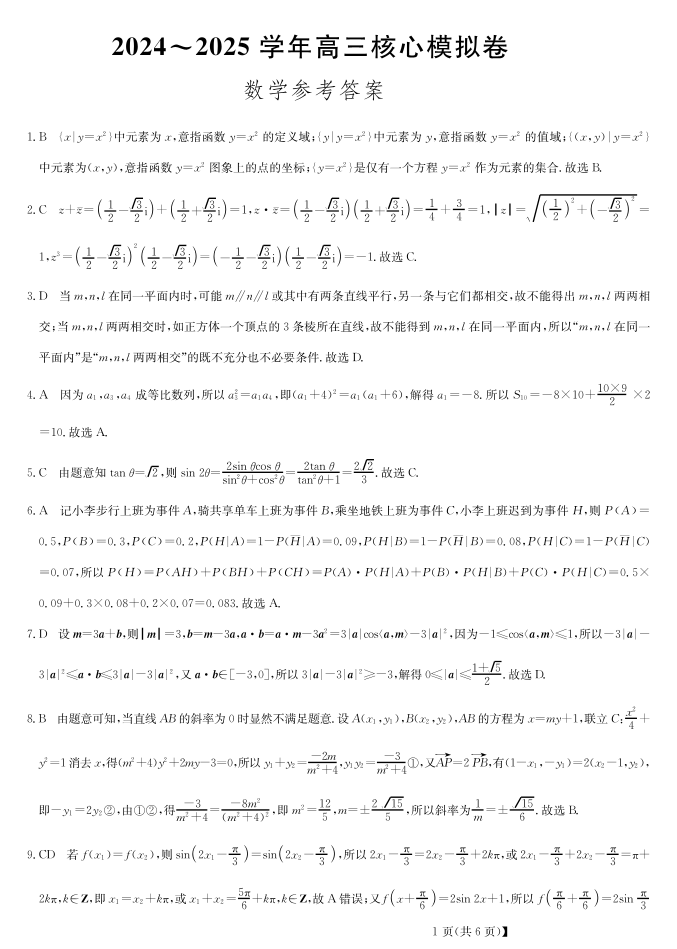 2024～2025 学年高三核心模拟卷
数学参考答案
1. B {x|y=x²}中元素为 x,意指函数 y=x² 的定义域;{y|y=x²}中元素为 y,意指函数 y=x² 的值域;{(x,y)|y=x²}
中元素为(x,y),意指函数 y=x² 图象上的点的坐标;{y=x²}是仅有一个方程 y=x² 作为元素的集合. 故选 B.
2. C z+z̄=(1/2-√3/2 i)+(1/2+√3/2 i)=1,z·z̄=(1/2-√3/2 i)(1/2+√3/2 i)=1/4+3/4=1,|z|=√((1/2)²+(-√3/2)²)=
1,z³=(1/2-√3/2 i)²(1/2-√3/2 i)=(-1/2-√3/2 i)(1/2-√3/2 i)=-1. 故选 C.
3. D 当 m,n,l 在同一平面内时,可能 m∥n∥l 或其中有两条直线平行,另一条与它们都相交,故不能得出 m,n,l 两两相
交;当 m,n,l 两两相交时,如正方体一个顶点的 3 条棱所在直线,故不能得到 m,n,l 在同一平面内,所以“m,n,l 在同一
平面内”是“m,n,l 两两相交”的既不充分也不必要条件. 故选 D.
4. A 因为 a₁,a₃,a₄ 成等比数列,所以 a₃²=a₁a₄,即(a₁+4)²=a₁(a₁+6),解得 a₁=-8. 所以 S₁₀=-8×10+(10×9)/2 ×2
=10. 故选 A.
5. C 由题意知 tan θ=√2,则 sin 2θ=(2sin θcos θ)/(sin²θ+cos²θ)=(2tan θ)/(tan²θ+1)=2√2/3. 故选 C.
6. A 记小李步行上班为事件 A,骑共享单车上班为事件 B,乘坐地铁上班为事件 C,小李上班迟到为事件 H,则 P(A)=
0.5,P(B)=0.3,P(C)=0.2,P(H|A)=1-P(H̄|A)=0.09,P(H|B)=1-P(H̄|B)=0.08,P(H|C)=1-P(H̄|C)
=0.07,所以 P(H)=P(AH)+P(BH)+P(CH)=P(A)·P(H|A)+P(B)·P(H|B)+P(C)·P(H|C)=0.5×
0.09+0.3×0.08+0.2×0.07=0.083. 故选 A.
7. D 设 m=3a+b,则|m|=3,b=m-3a,a·b=a·m-3a²=3|a|cos⟨a,m⟩-3|a|²,因为-1≤cos⟨a,m⟩≤1,所以-3|a|-
3|a|²≤a·b≤3|a|-3|a|²,又 a·b∈[-3,0],所以 3|a|-3|a|²≥-3,解得 0≤|a|≤(1+√5)/2. 故选 D.
8. B 由题意可知,当直线 AB 的斜率为 0 时显然不满足题意. 设 A(x₁,y₁),B(x₂,y₂),AB 的方程为 x=my+1,联立 C:x²/4+
y²=1 消去 x,得(m²+4)y²+2my-3=0,所以 y₁+y₂=-2m/(m²+4),y₁y₂=-3/(m²+4)①,又AP→=2 PB→,有(1-x₁,-y₁)=2(x₂-1,y₂),
即-y₁=2y₂②,由①②,得-3/(m²+4)=-8m²/(m²+4)²,即 m²=12/5,m=±2√15/5,所以斜率为1/m=±√15/6. 故选 B.
9. CD 若 f(x₁)=f(x₂),则 sin(2x₁-π/3)=sin(2x₂-π/3),所以 2x₁-π/3=2x₂-π/3+2kπ,或 2x₁-π/3+2x₂-π/3=π+
2kπ,k∈Z,即 x₁=x₂+kπ,或 x₁+x₂=5π/6+kπ,k∈Z,故 A 错误;又 f(x+π/6)=2sin 2x+1,所以 f(π/6+π/6)=2sin π/3
1 页(共 6 页)】